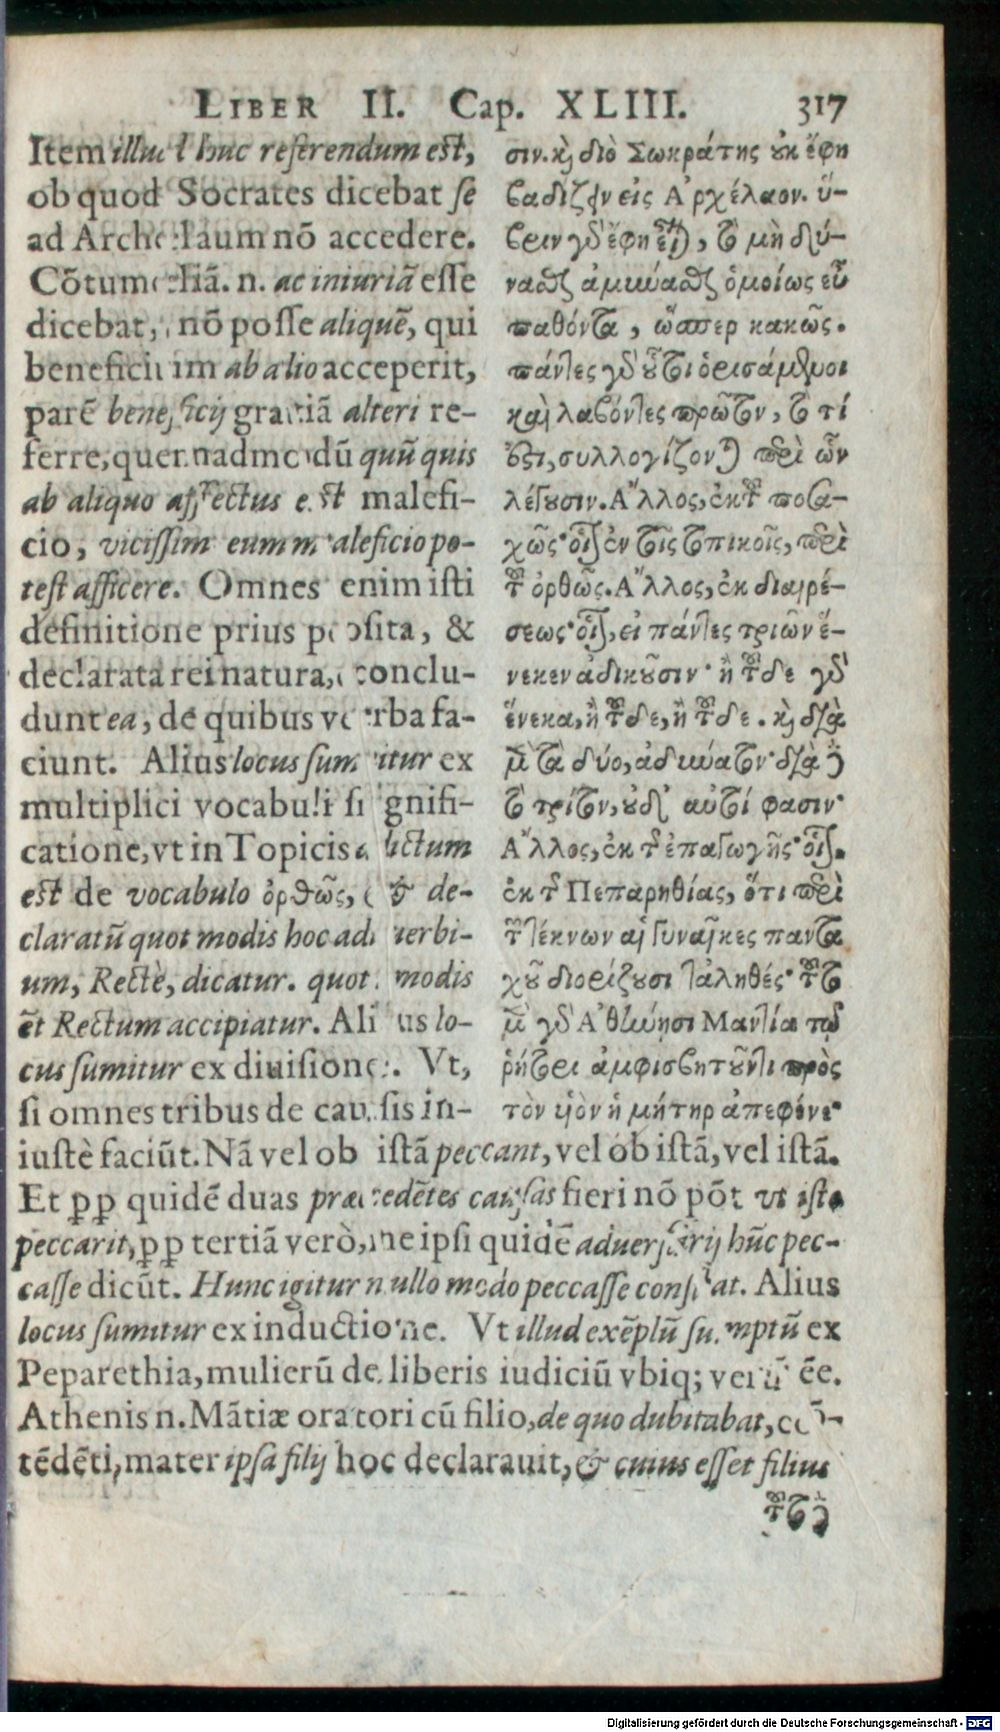 LIBER II. Cap. XLIII. 317
Item illud huc referendum est,
ob quod Socrates dicebat se
ad Archelaum nō accedere.
Cōtumeliā. n. ac iniuriā esse
dicebat, nō posse aliquē, qui
beneficium ab alio acceperit,
parē beneficij gratiā alteri re-
ferre, quemadmodū quū quis
ab aliquo affectus est malefi-
cio, vicissim eum maleficio po-
test afficere. Omnes enim isti
definitione prius posita, &
declarata rei natura, conclu-
dunt ea, de quibus verba fa-
ciunt. Alius locus sumitur ex
multiplici vocabuli signifi-
catione, vt in Topicis dictum
est de vocabulo ὀρθῶς, & de-
claratū quot modis hoc aduerbi-
um, Rectè, dicatur. quot modis
et Rectum accipiatur. Alius lo-
cus sumitur ex diuisione. Vt,
si omnes tribus de causis in-
σιν. καὶ διὸ Σωκράτης οὐκ ἔφη
βαδίζειν εἰς Ἀρχέλαον. ὕ-
βριν γὰρ ἔφη εἶναι, τὸ μὴ δύ-
νασθαι ἀμύνασθαι ὁμοίως εὖ
παθόντα, ὥσπερ κακῶς.
πάντες γὰρ οὗτοι ὁρισάμενοι
καὶ λαβόντες πρῶτον, τὸ τί
ἐστι, συλλογίζονται περὶ ὧν
λέγουσιν. Ἄλλος, ἐκ τοῦ ποσα-
χῶς· οἷον ἐν τοῖς τοπικοῖς, περὶ
τοῦ ὀρθῶς. Ἄλλος, ἐκ διαιρέ-
σεως· οἷον, εἰ πάντες τριῶν ἕ-
νεκεν ἀδικοῦσιν· ἢ τοῦδε γὰρ
ἕνεκα, ἢ τοῦδε, ἢ τοῦδε. καὶ διὰ
μὲν τὰ δύο, ἀδύνατον· διὰ δὲ
τὸ τρίτον, οὐδ' αὐτοί φασιν·
Ἄλλος, ἐκ τῆς ἐπαγωγῆς· οἷον.
ἐκ τῆς Πεπαρηθίας, ὅτι περὶ
τῶν τέκνων αἱ γυναῖκες παντα
χοῦ διορίζουσι τἀληθές· τοῦτο
μὲν γὰρ Ἀθήνησι Μαντίᾳ τῷ
ῥήτορι ἀμφισβητοῦντι πρὸς
τὸν υἱὸν ἡ μήτηρ ἀπέφηνε·
iustè faciūt. Nā vel ob istā peccant, vel ob istā, vel istā.
Et ꝓꝓ quidē duas præcedētes causas fieri nō pōt vt iste
peccarit, ꝓꝓ tertiā verò, ne ipsi quidē aduersarij hūc pec-
casse dicūt. Hunc igitur nullo modo peccasse constat. Alius
locus sumitur ex inductione. Vt illud exēplū sumptū ex
Peparethia, mulierū de liberis iudiciū vbiq; verū ēe.
Athenis n. Mātiæ oratori cū filio, de quo dubitabat, cō-
tēdēti, mater ipsa filij hoc declarauit, & cuius esset filius
τοῦτο δὲ
Digitalisierung gefördert durch die Deutsche Forschungsgemeinschaft - DFG